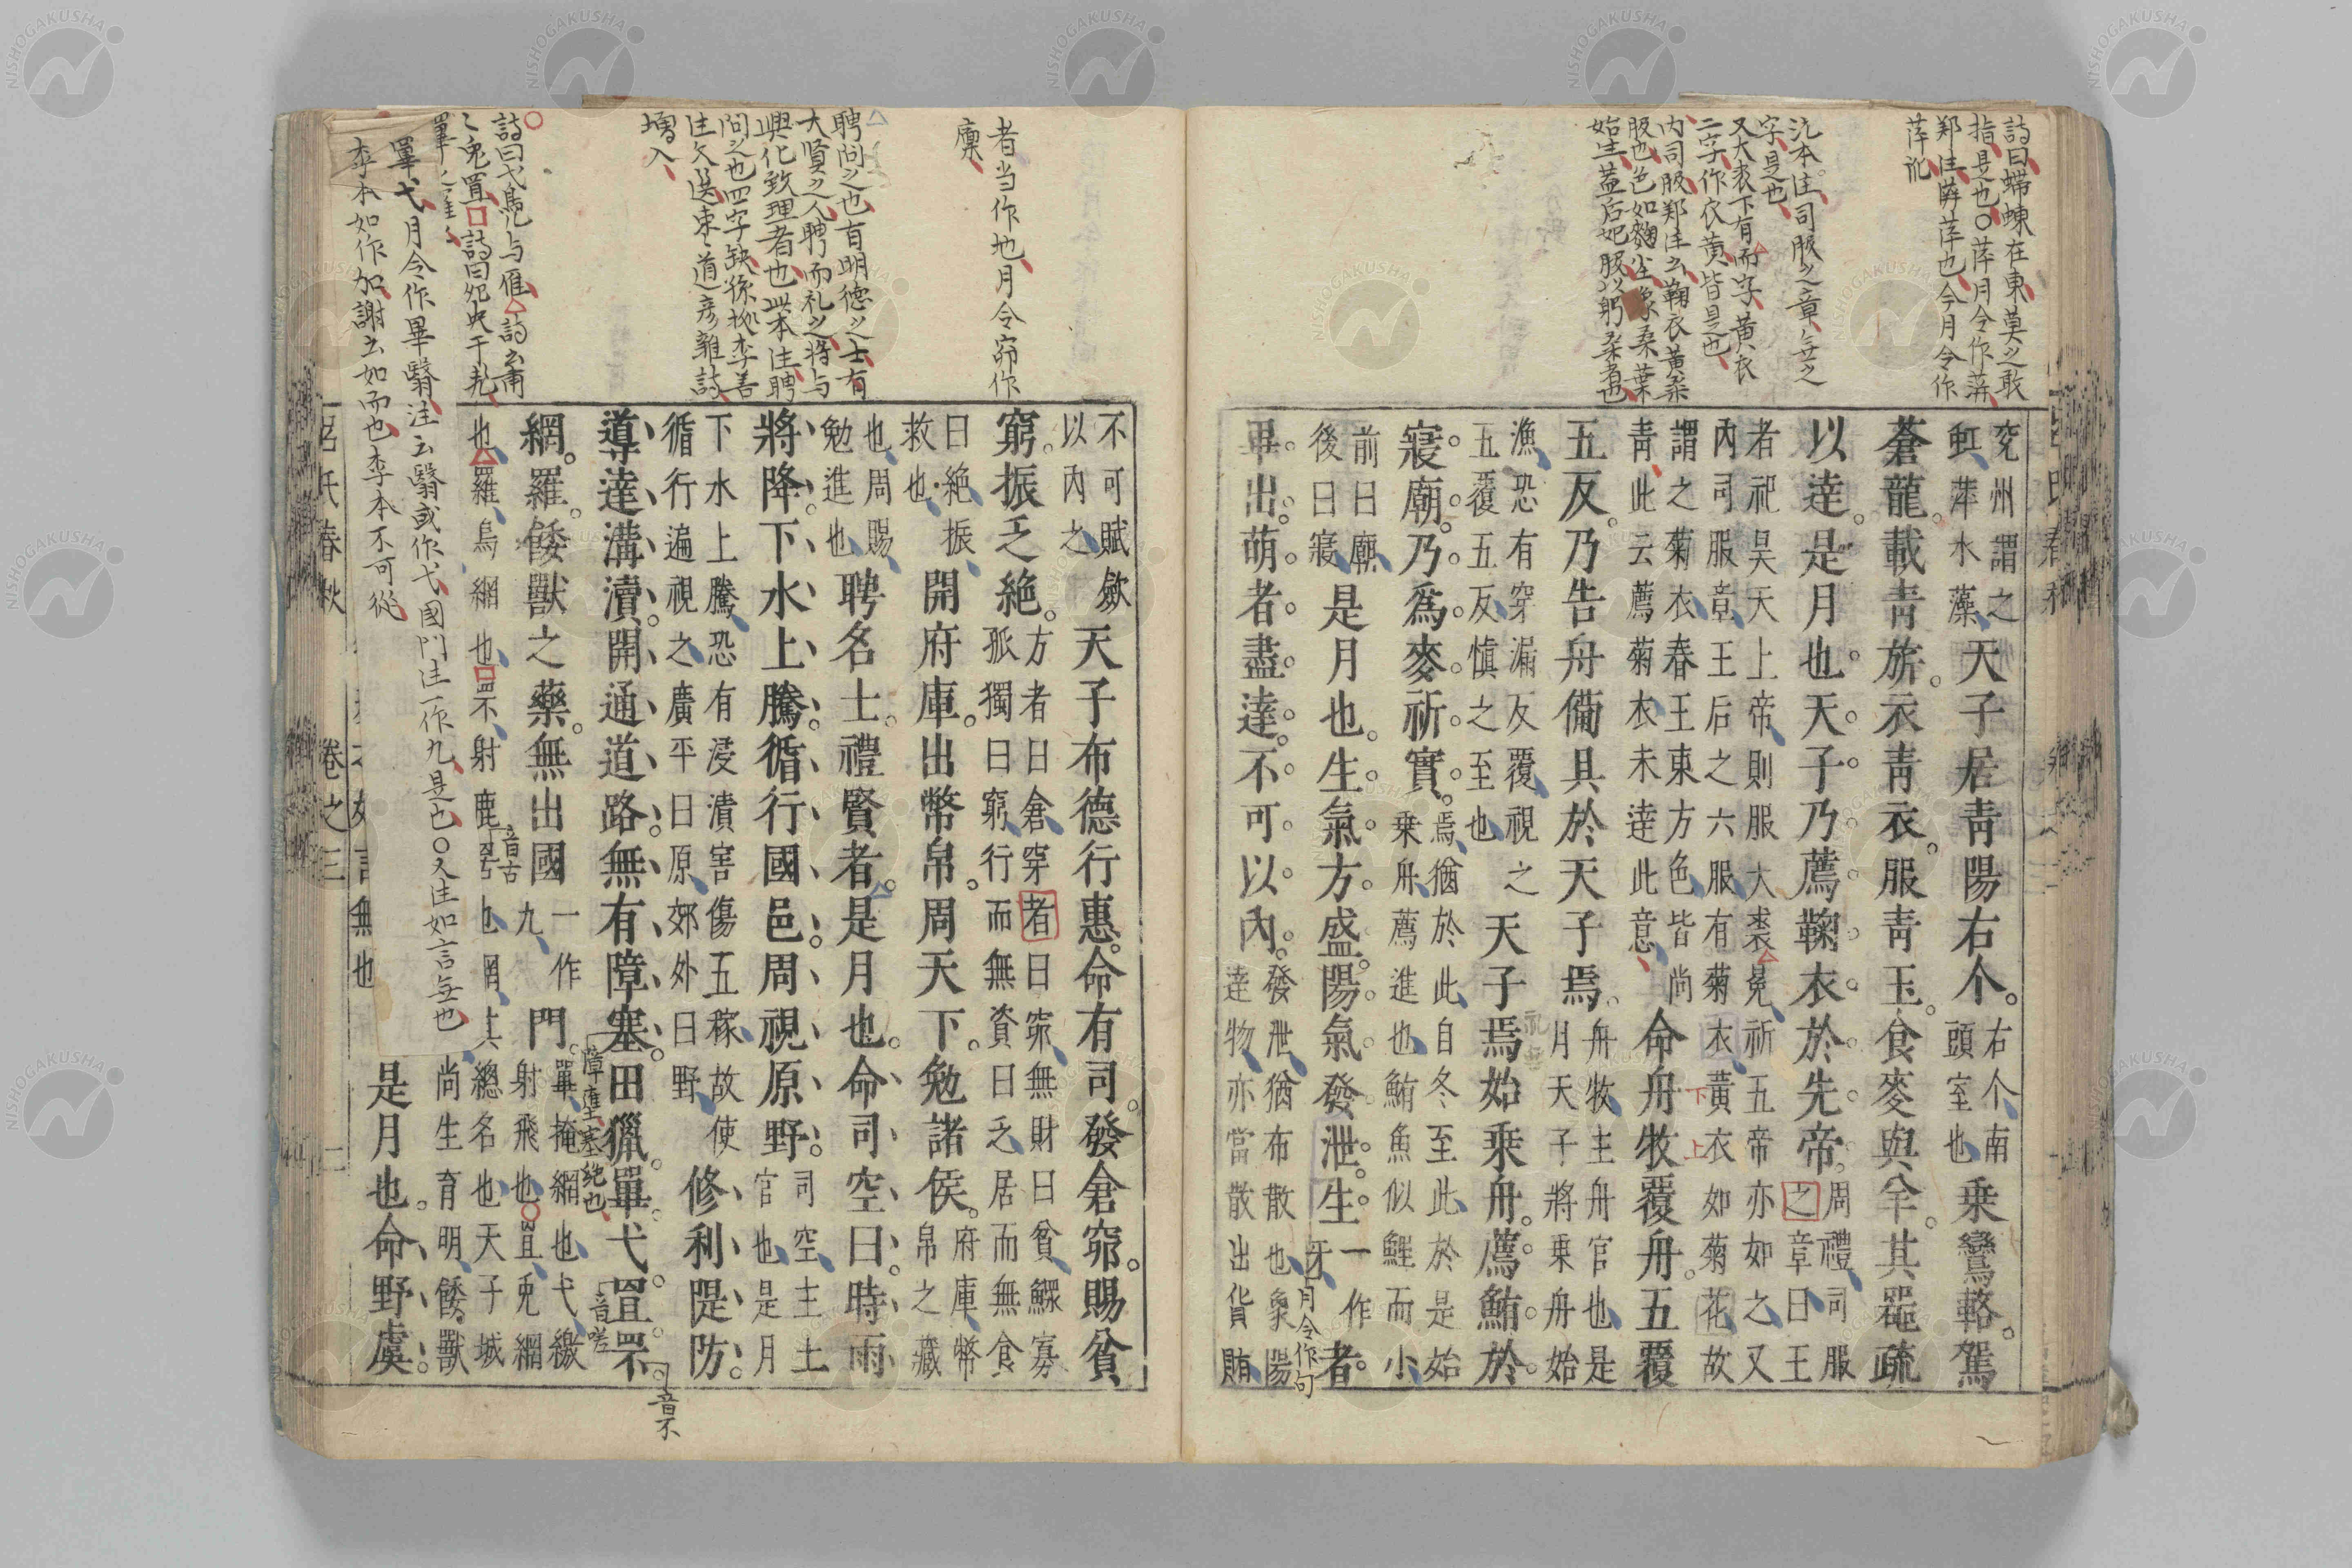 詩曰蝃蝀在東莫之敢
指是也〇萍月令作蓱
鄭注蓱萍也今月令作
萍訛
沈本注司服之章無之
字是也
又大裘下有而字黃衣
二字作衣黃皆是也
內司服鄭注云鞠衣黃桑
服也色如麴塵像桑葉
始生蓋后妃服以躬桑者也
兗州謂之
虹萍水藻
天子居青陽右个
右个南
頭室也
乘鸞輅駕
蒼龍載青旂衣青衣服青玉食麥與羊其器疏
以達是月也天子乃薦鞠衣於先帝
周禮司服
之章曰王
者祀昊天上帝則服大裘冕祈五帝亦如之又
內司服章王后之六服有菊衣黃衣如菊花故
謂之菊衣春王東方色皆尚
青此云薦菊衣未達此意
命舟牧覆舟五覆
五反乃告舟備具於天子焉
舟牧主舟官也是
月天子將乘舟始
漁恐有穿漏反覆視之
五覆五反慎之至也
天子焉始乘舟薦鮪於
寢廟乃為麥祈實
焉猶於此自冬至此於是始
乘舟薦進也鮪魚似鯉而小
前曰廟
後曰寢
是月也生氣方盛陽氣發泄生
一作
牙
者
月令作句
畢出萌者盡達不可以內
發泄猶布散也象陽
達物亦當散出貨賄
者当作地月令窌作
廩
聘問之也有明德之士有
大賢之人聘而礼之將与
興化致理者也此本注聘
問之也四字缺孫據李善
注文選束道彥雜詩
增入
詩曰弋鳧与雁詩云肅
兔罝詩曰鴛央于飛
罼弋月令作畢翳注云翳或作弋國門注一作九是也〇又注如言無也
李本如作加謝云如而也李本不可從
不可賦斂
以內之
天子布德行惠命有司發倉窌賜貧
窮振乏絕
方者曰倉穿者曰窌無財曰貧鰥寡
孤獨曰窮行而無資曰乏居而無食
曰絕振
救也
開府庫出幣帛周天下勉諸侯
府庫幣
帛之藏
也周賜
勉進也
聘名士禮賢者是月也命司空曰時雨
將降下水上騰循行國邑周視原野
司空主土
官也是月
下水上騰恐有浸漬害傷五稼故使
循行遍視之廣平曰原郊外曰野
修利隄防
導達溝瀆開通道路無有障塞田獵罼弋罝罘
障壅塞絕也
音嗟
音不
網羅餧獸之藥無出國
一作
九
門
罼掩網也弋繳
射飛也罝兔網
也羅鳥網也罘射鹿
音古
網其總名也天子城
尚生育明餧獸
是月也命野虞
呂氏春秋
卷之三
二
NISHOGAKUSHA